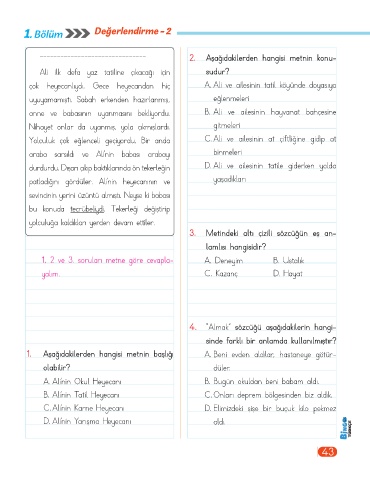 1. Bölüm
Değerlendirme - 2
Ali ilk defa yaz tatiline çıkacağı için
çok heyecanlıydı. Gece heyecandan hiç
uyuyamamıştı. Sabah erkenden hazırlanmış,
anne ve babasının uyanmasını bekliyordu.
Nihayet onlar da uyanmış, yola çıkmışlardı.
Yolculuk çok eğlenceli geçiyordu. Bir anda
araba sarsıldı ve Ali'nin babası arabayı
durdurdu. Dışarı çıkıp baktıklarında ön tekerleğin
patladığını gördüler. Ali'nin heyecanının ve
sevincinin yerini üzüntü almıştı. Neyse ki babası
bu konuda tecrübeliydi. Tekerleği değiştirip
yolculuğa kaldıkları yerden devam ettiler.
1, 2 ve 3. soruları metne göre cevapla-
yalım.
1. Aşağıdakilerden hangisi metnin başlığı
olabilir?
A. Ali'nin Okul Heyecanı
B. Ali'nin Tatil Heyecanı
C. Ali'nin Karne Heyecanı
D. Ali'nin Yarışma Heyecanı
2. Aşağıdakilerden hangisi metnin konu-
sudur?
A. Ali ve ailesinin tatil köyünde doyasıya
eğlenmeleri
B. Ali ve ailesinin hayvanat bahçesine
gitmeleri
C. Ali ve ailesinin at çiftliğine gidip at
binmeleri
D. Ali ve ailesinin tatile giderken yolda
yaşadıkları
3. Metindeki altı çizili sözcüğün eş an-
lamlısı hangisidir?
A. Deneyim B. Ustalık
C. Kazanç D. Hayat
4. "Almak" sözcüğü aşağıdakilerin hangi-
sinde farklı bir anlamda kullanılmıştır?
A. Beni evden aldılar, hastaneye götür-
düler.
B. Bugün okuldan beni babam aldı.
C. Onları deprem bölgesinden biz aldık.
D. Elimizdeki şişe bir buçuk kilo pekmez
aldı.
43